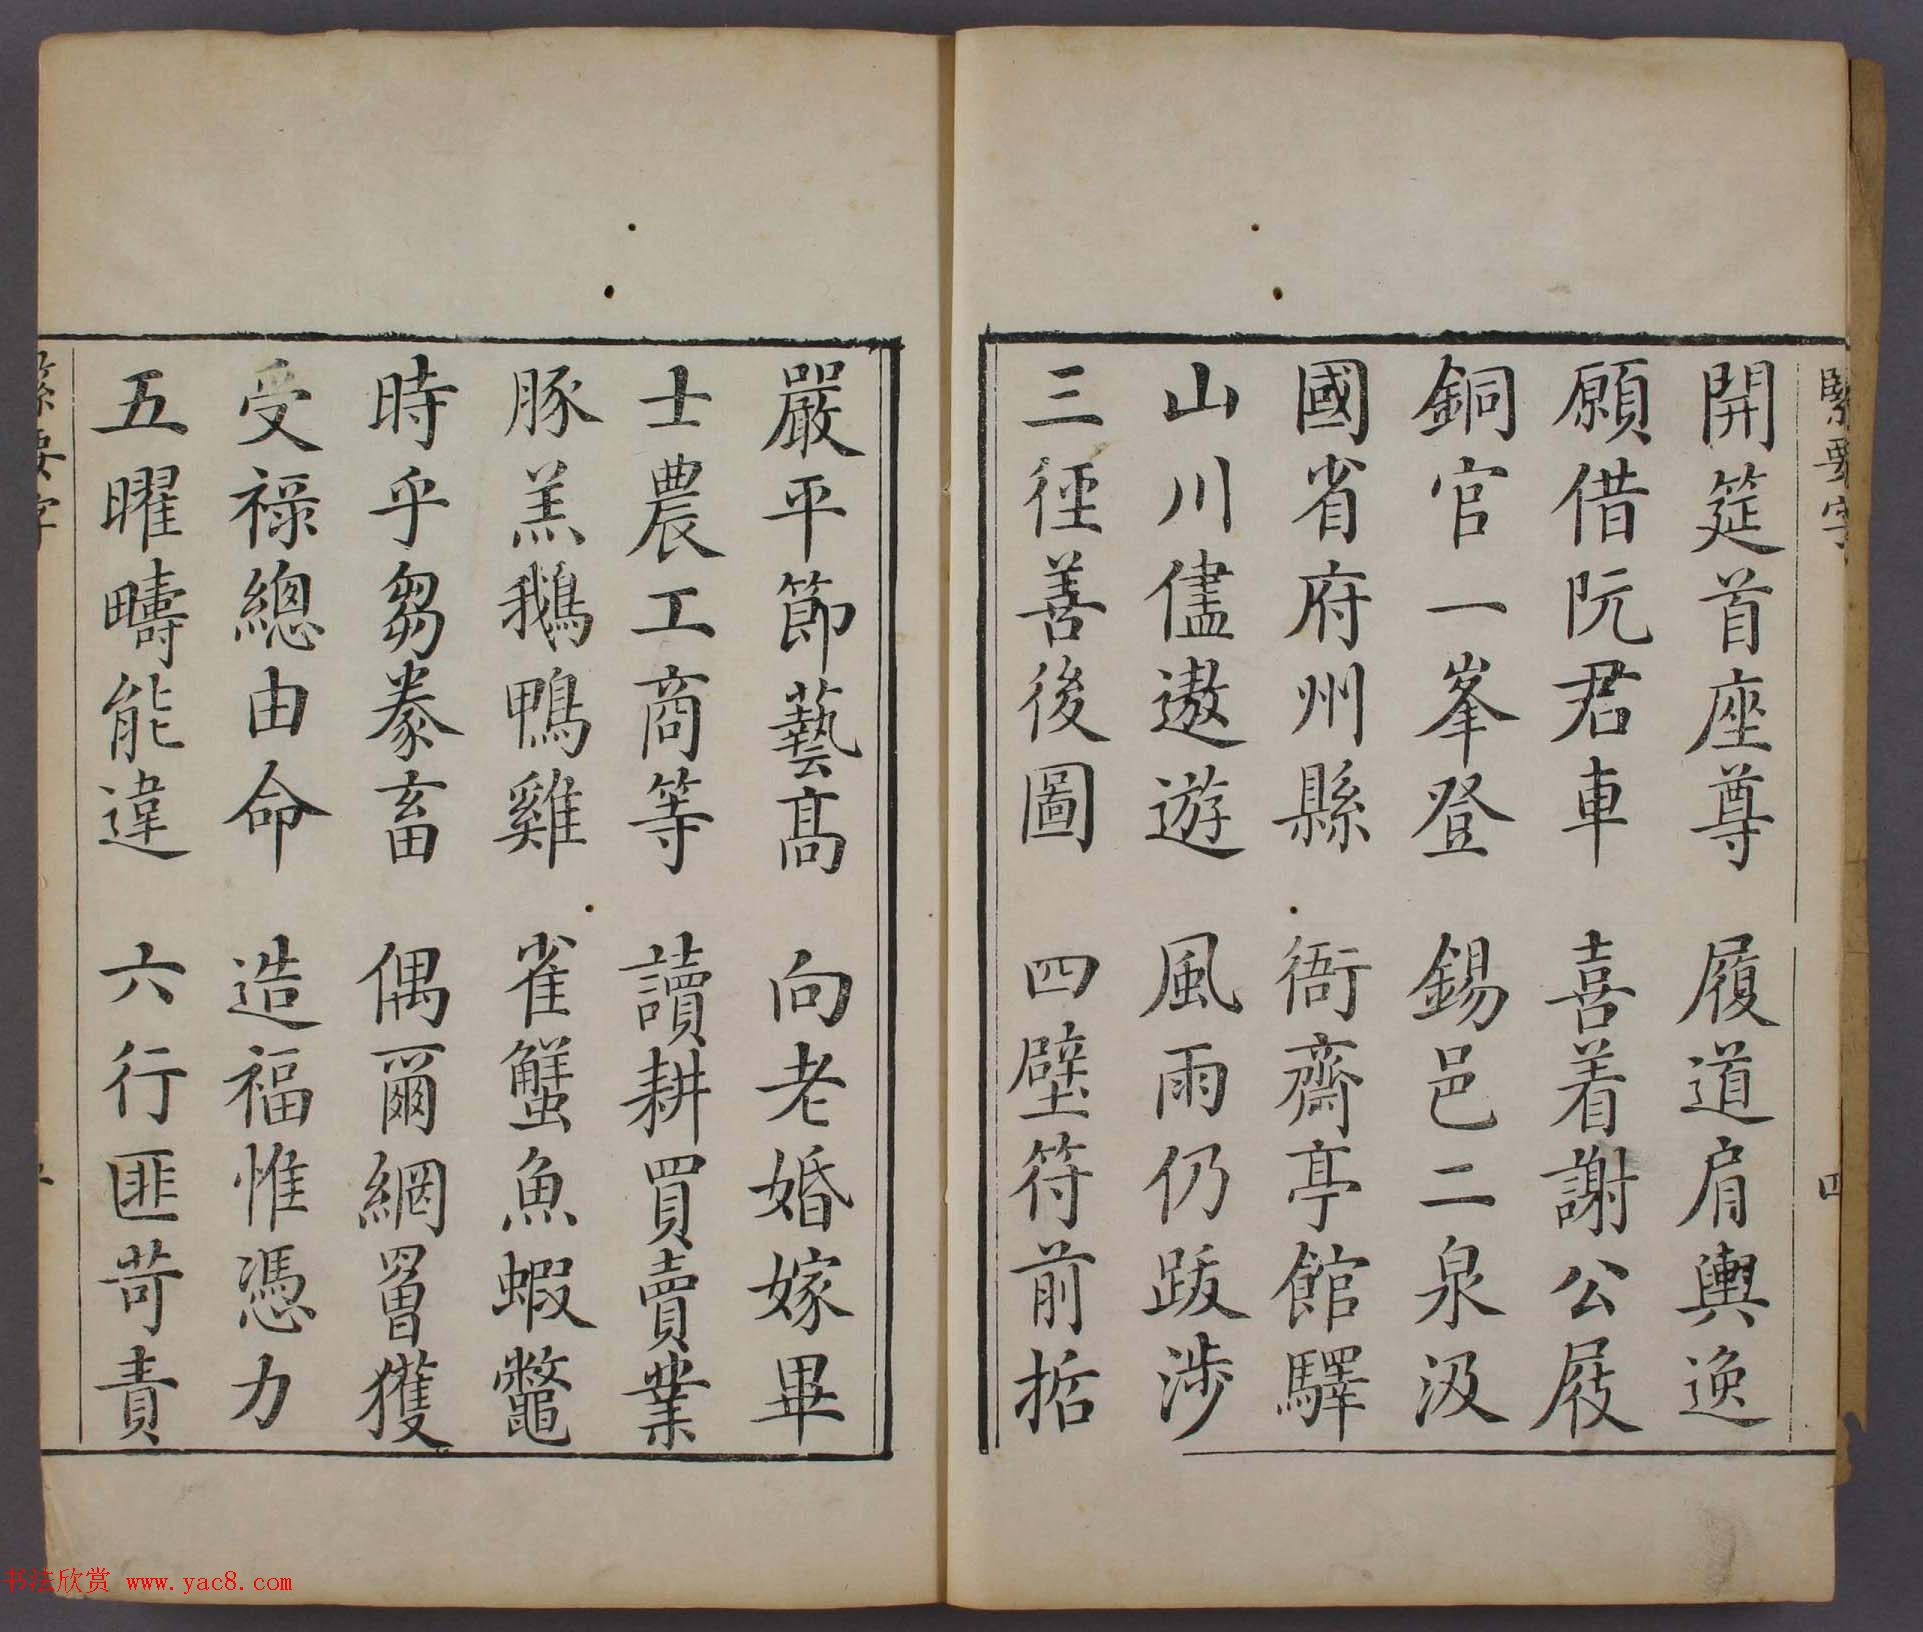 緊要字
四
開筵首座尊 履道肩輿逸
願借阮君車 喜着謝公屐
銅官一峯登 錫邑二泉汲
國省府州縣 衙齋亭館驛
山川儘遨遊 風雨仍跋涉
三徑善後圖 四壁符前哲
嚴平節藝高 向老婚嫁畢
士農工商等 讀耕買賣業
豚羔鵝鴨雞 雀蟹魚蝦鼈
時乎芻豢畜 偶爾網罾獲
受祿總由命 造福惟憑力
五曜疇能違 六行匪苛責
緊要字
书法欣赏 www.yac8.com